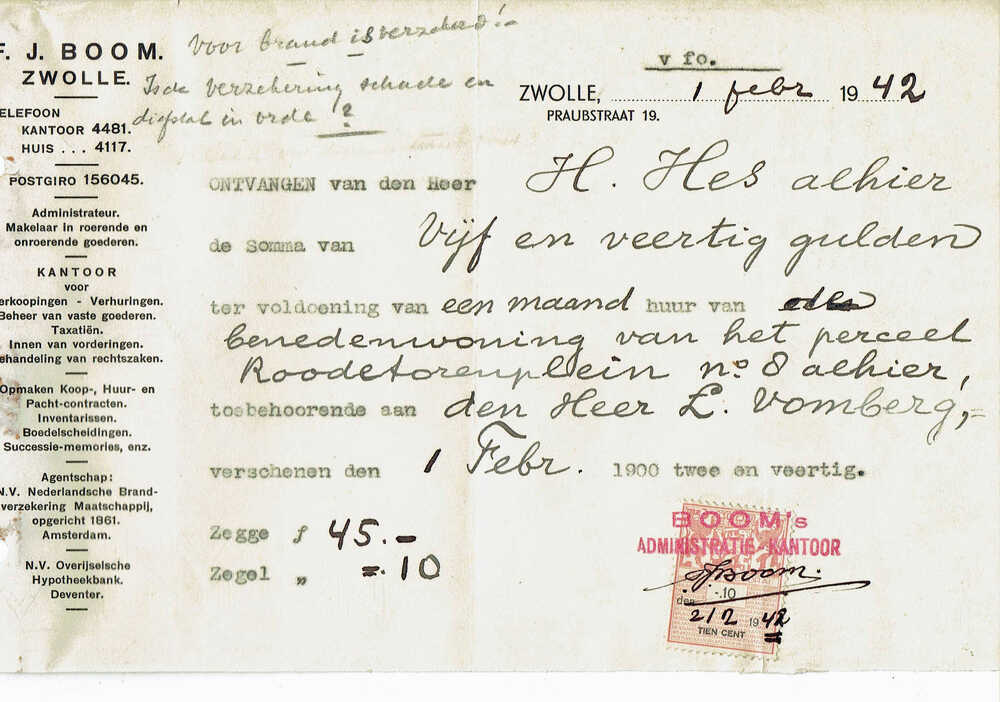 F. J. BOOM.
ZWOLLE.
ELEFOON
KANTOOR 4481.
HUIS . . . 4117.
POSTGIRO 156045.
Administrateur.
Makelaar in roerende en
onroerende goederen.
KANTOOR
voor
erkoopingen - Verhuringen.
Beheer van vaste goederen.
Taxatiën.
Innen van vorderingen.
ehandeling van rechtszaken.
Opmaken Koop-, Huur- en
Pacht-contracten.
Inventarissen.
Boedelscheidingen.
Successie-memories, enz.
Agentschap:
N.V. Nederlandsche Brand-
verzekering Maatschappij,
opgericht 1861.
Amsterdam.
N.V. Overijselsche
Hypotheekbank.
Deventer.
Voor brand is verzekerd!-
Is de verzekering schade en
diefstal in orde?
v fo.
ZWOLLE, 1 febr 1942
PRAUBSTRAAT 19.
ONTVANGEN van den Heer H. Hes alhier
de Somma van Vijf en veertig gulden
ter voldoening van een maand huur van
benedenwoning van het perceel
Roodetorenplein no 8 alhier,
toebehoorende aan den Heer L. Vomberg,-
verschenen den 1 Febr. 1900 twee en veertig.
Zegge f 45.-
Zegel „ =.10
BOOM's
ADMINISTRATIE KANTOOR
FJBoom.
-.10
den 2/2 1942
TIEN CENT